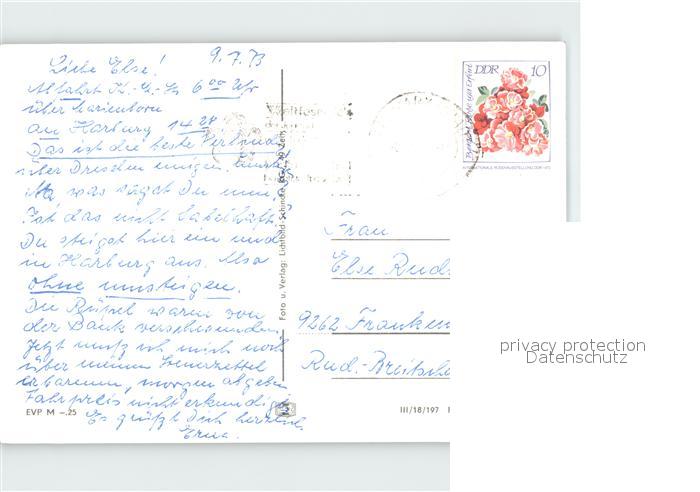 9.7.73
Liebe Else!
Abfahrt K.-M.-St 6 00 Uhr
über Marienborn
an Harburg 14 28
Das ist die beste Verbind.
über Dresden
Na, was sagst Du nun,
Ist das nicht fabelhaft?
Du steigst hier ein und
in Harburg aus. Also
ohne umsteigen.
Die Rüpel waren von
der Bank verschwunden.
Jetzt muß ich mich noch
über meinen
erbarmen, morgen abgeben
Fahrpreis nicht erkundigt
Es grüßt Dich herzlich
Erna.
EVP M –.25
Foto u. Verlag: Lichtbild-Schincke
III/18/197
DDR 10
INTERNATIONALE ROSENAUSSTELLUNG DDR 1972
Frau
Else Rud
9262 Franken
Rud.-Breitsche
privacy protection
Datenschutz